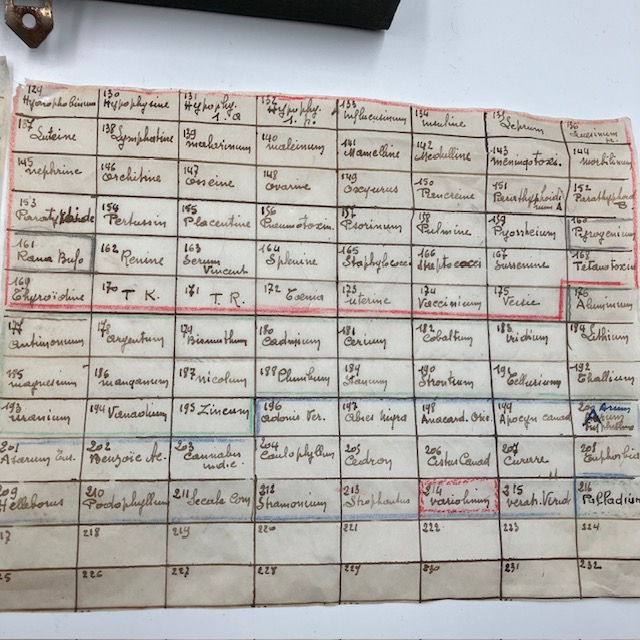 129 130 131 132 133 134 135 136
Hydrophobinum Hypophysine Hypophy. Hypophy. Influensinum insuline Leprum
137 138 139 140 141 142 143 144
Luteine Lymphatine malarinum malleinum Mamelline Medulline meningotoxi. morbilinum
145 146 147 148 149 150 151 152
nephrine orchitine osseine ovarine oxyurus Pancreine Parathyphoidi Parathyphoid
num A B
153 154 155 156 157 158 159 160
Pertussin Placentine Pneumotoxin. Psorinum Pulmine Pyorrheium Pyrogenium
161 162 163 164 165 166 167 168
Rana Bufo Renine Serum Splenine Staphylococci Streptococci Tetanotoxin
Vincent
169 170 171 172 173 174 175 176
Thyroidine T K. T. R. Taenia uterine Vaccinium Aluminum
177 178 179 180 181 182 183 184
Antimonium Argentum Bismuthum Cadmium Cerium Cobaltum iridium Lithium
185 186 187 188 189 190 191 192
magnesium manganum nicolum Plumbum Stanum Strontium Tellurium Thallium
193 194 195 196 197 198 199 200
uranium Vanadium Zincum Adonis Ver. Abies nigra Anacard. Orie. Apocyn canad Arum
201 202 203 204 205 206 207 208
Asarum Eur. Benzoic Ac. Cannabis Caulophyllum Cedron Cistus Canad Curare Euphorbia
indic.
209 210 211 212 213 214 215 216
Helleborus Podophyllum Secale Corn Stramonium Strophantus variolinum verat. Virid Palladium
17 218 219 220 221 222 223 224
25 226 227 228 229 230 231 232